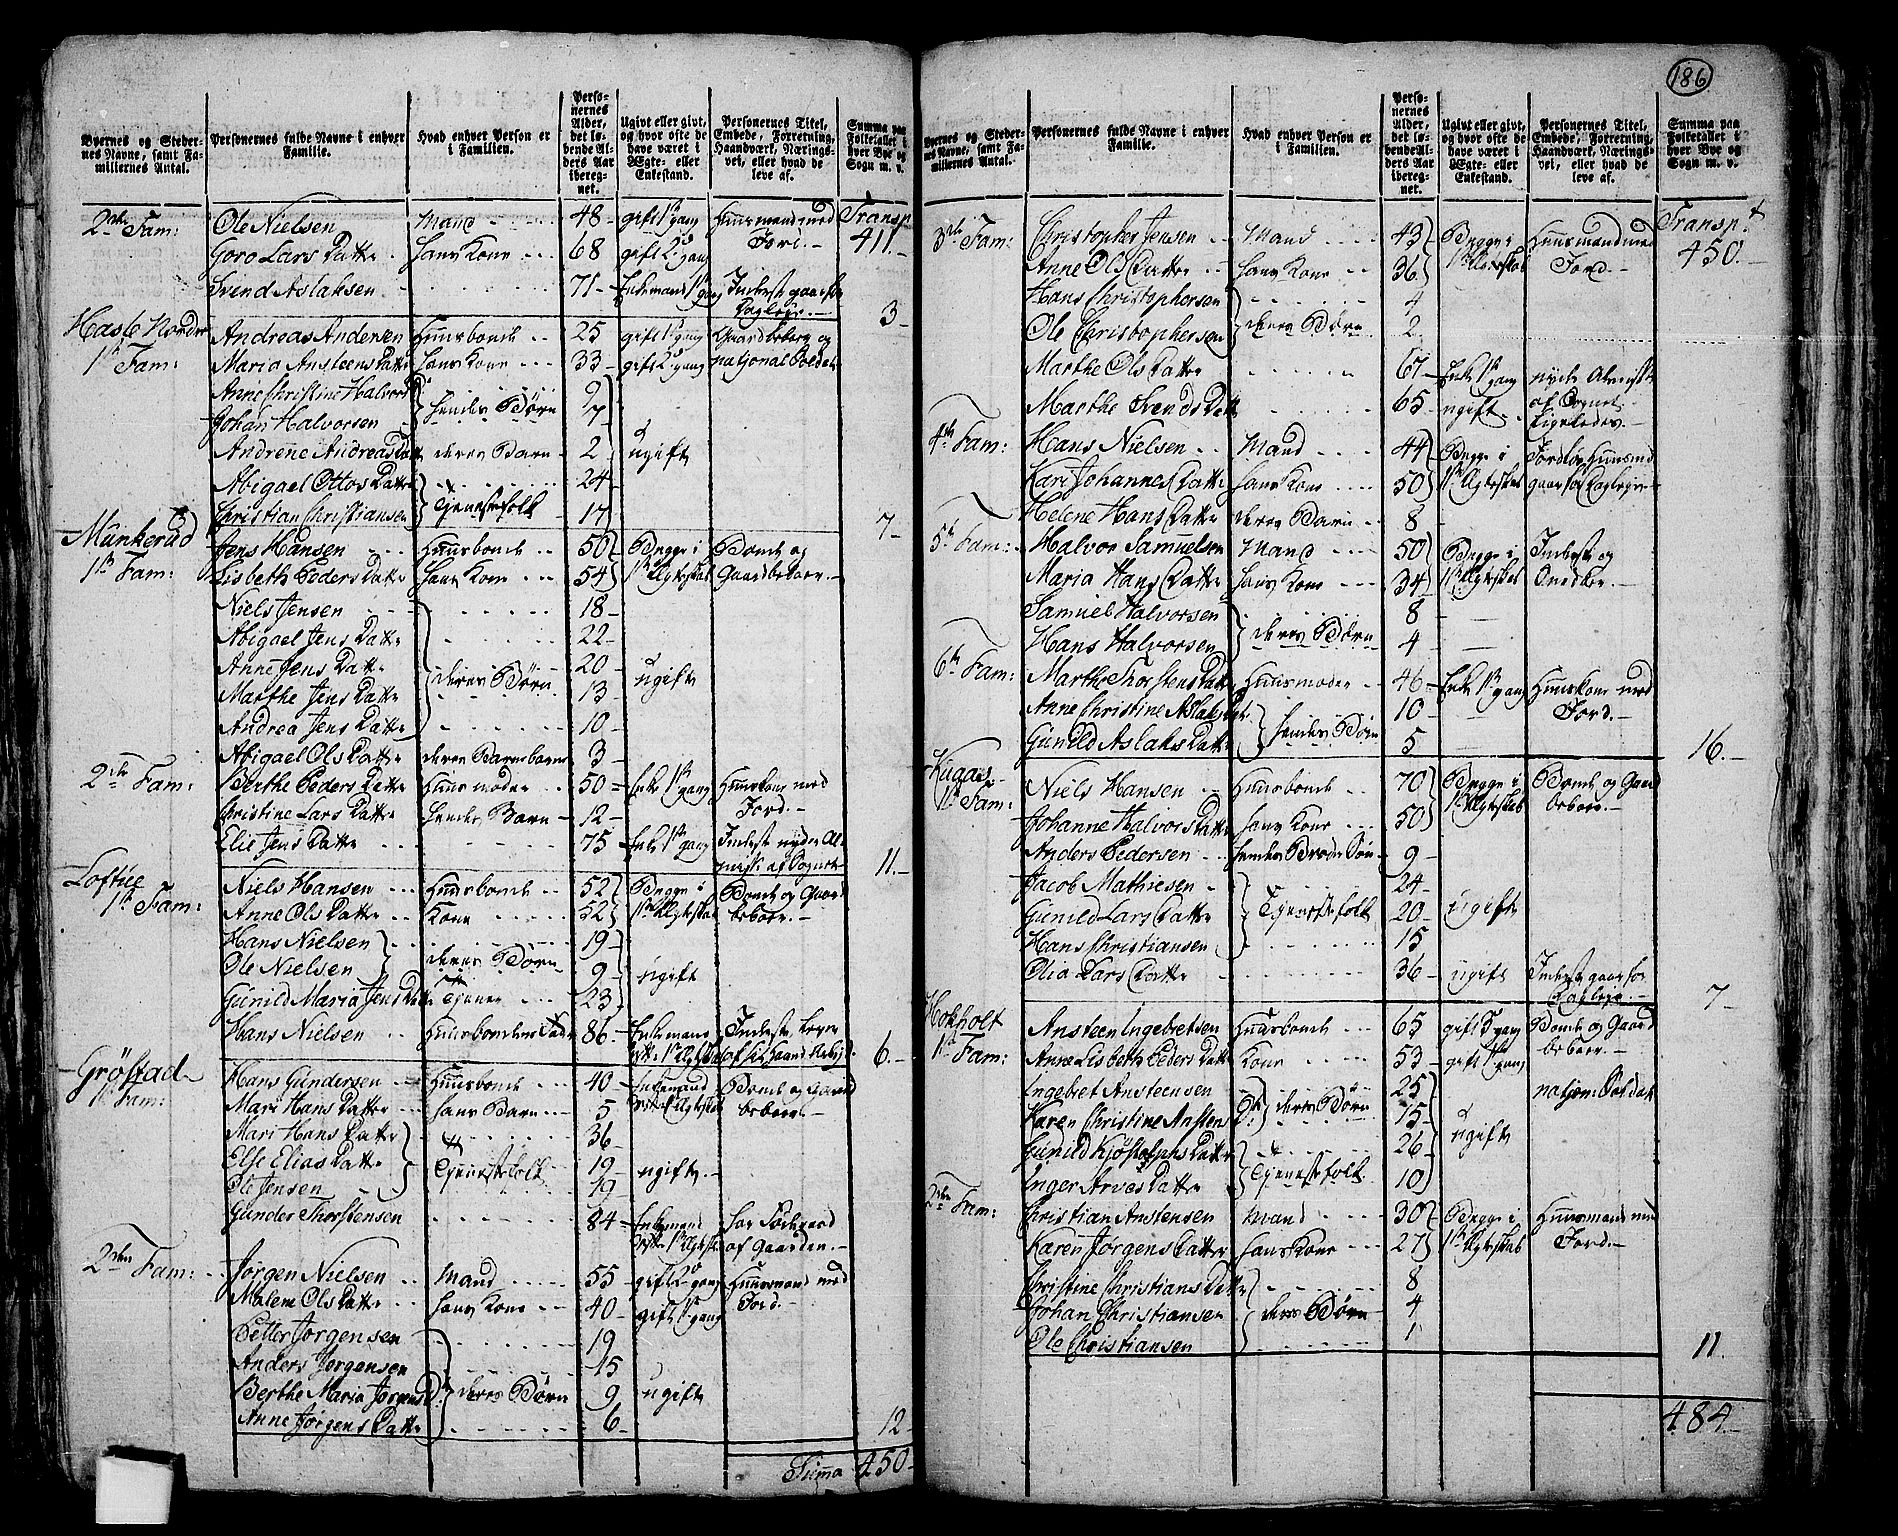 186
Byernes og Stedernes Navne, samt Familiernes Antal.
Personernes fulde Navne i enhver Familie.
Hvad enhver Person er i Familien.
Personernes Alder, det løbende Alders Aar iberegnet.
Ugivt eller givt, og hvor ofte de have været i Ægte- eller Enkestand.
Personernes Titel, Embede, Forretning, Haandværk, Næringsvei, eller hvad de leve af.
Summa paa Folketallet i hver Bye og Sogn m. v.
Transp
2den Fam: Ole Nielsen Mand 48 gift 1st gang Huusmand med Jord. 411.
Goro Lars Datter hans Kone 68 gift 2. gang
Svend Aslaksen 71 Enkemand 1st gang Inderst gaar for Dagleje. 3
Hasle Nordre
1st Fam: Andreas Andersen Huusbonde 25 gift 1st gang Gaardbeboer og
Maria Ansteens Datter hans Kone 33 gift 2. gang national Soldat
Anne Christine Halvorsd 9
Johan Halvorsen hendes Børn 7
Andrene Andreas Datt deres Barn 2 ugift
Abigael Ottos Datter 24
Christian Christiansen Tjenestefolk 17 7
Munkerud
1st Fam: Jens Hansen Huusbonde 50 Begge i Bonde og
Lisbeth Peders Datter hans Kone 54 1st Ægteskab Gaardbeboer.
Niels Jensen 18
Abigael Jens Datter 22
Anne Jens Datter 20
Marthe Jens Datter deres Børn 13 ugift
Andrea Jens Datter 10
Abigael Ols Datter deres Barnebarn 3
2den Fam: Berthe Peders Datter Huusmoder 50 Enke 1st gang Huuskone med Jord.
Christine Lars Datter hendes Barn 12
Elie Jens Datter 75 Enke 1st gang Inderst nyder Almisse af Sognet 11.
Loftue
1st Fam: Niels Hansen Huusbonde 52 Begge i Bonde og Gaard
Anne Ols Datter Kone 52 1st Ægteskab beboer.
Hans Nielsen 19
Ole Nielsen deres Børn 9 ugift
Gunild Maria Jens Datter Tjener 23
Hans Nielsen Huusbondens Fader 86 Enkemand Inderst, lever af sit Haand Arbejd 6.
Gröstad
1st Fam: Hans Gundersen Huusbonde 40 Enkemand Bonde og Gaard
Mari Hans Datter hans Barn 5 beboer.
Mari Hans Datter 36
Else Elias Datter Tjenestefolk 19 ugift.
Ole Jensen 19
Gunder Thorstensen 84 Enkemand har Föderaad af Gaarden.
2den Fam: Jørgen Nielsen Mand 55 gift 2. gang Huusmand med
Malene Ols Datter hans Kone 40 gift 1st gang Jord.
Petter Jørgensen 19
Anders Jørgensen 15
Berthe Maria Jørgensd: deres Børn 9 ugift
Anne Jørgens Datter 6 12
Summa 450
Byernes og Stedernes Navne, samt Familiernes Antal.
Personernes fulde Navne i enhver Familie.
Hvad enhver Person er i Familien.
Personernes Alder, det løbende Alders Aar iberegnet.
Ugivt eller givt, og hvor ofte de have været i Ægte- eller Enkestand.
Personernes Titel, Embede, Forretning, Haandværk, Næringsvei, eller hvad de leve af.
Summa paa Folketallet i hver Bye og Sogn m. v.
Transpt
3die Fam: Christopher Jensen Mand 43 Begge i Huusmand med 450.
Anne Ols Datter hans Kone 36 1st Ægteskab Jord.
Hans Christophersen 4
Ole Christophersen deres Børn 2
Marthe Ols Datter 67 Enke 1st gang nyder Almisse
Marthe Svends Datt 65 ugift af Sognet. Ligeledes.
4th Fam: Hans Nielsen Mand 44 Begge i Jordløs Huusmd
Kari Johannes Datter hans Kone 50 1st Ægteskab gaar for Dagleje
Helene Hans Datter deres Barn 8
5th Fam: Halvor Samuelsen Mand 50 Begge i Inderst og
Maria Hans Datter hans Kone 34 1st Ægteskab
Samuel Halvorsen 8
Hans Halvorsen deres Børn 4
6th Fam: Marthe Thorstens Datter Huusmoder 46 Enke 1st gang Huuskone med
Anne Christine Aslaksdt. 10 Jord.
Gunild Aslaks Datter hendes Børn 5 16.
Kugaas
1st Fam: Niels Hansen Huusbonde 70 Begge i Bonde og Gaard
Johanne Halvors Datter hans Kone 50 1st Ægteskab beboer.
Anders Pedersen hendes Broder Søn 9
Jacob Mathiesen 24
Gunild Lars Datter Tjenestefolk 20 ugift
Hans Christiansen 15
Olia Lars Datter 36 ugift Inderst gaar for Dagleje. 7
Hokholt
1st Fam: Ansteen Ingebretsen Huusbonde 65 gift 3. gang Bonde og Gaard
Anne Lisbeth Peders Datter Kone 53 gift 1st gang beboer.
Ingebret Ansteensen 25 nation: Soldat
Karen Christine Ansten D: deres Børn 15
Gunild Kjøstolphs Datter 26 ugift
Inger Arves Datter Tjenestefolk 10
2den Fam: Christian Anstensen Mand 30 Begge i Huusmand med
Karen Jørgens Datter hans Kone 27 1st Ægteskab Jord.
Christine Christians Datter 8
Johan Christiansen deres Børn 4
Ole Christiansen 1 11.
484.